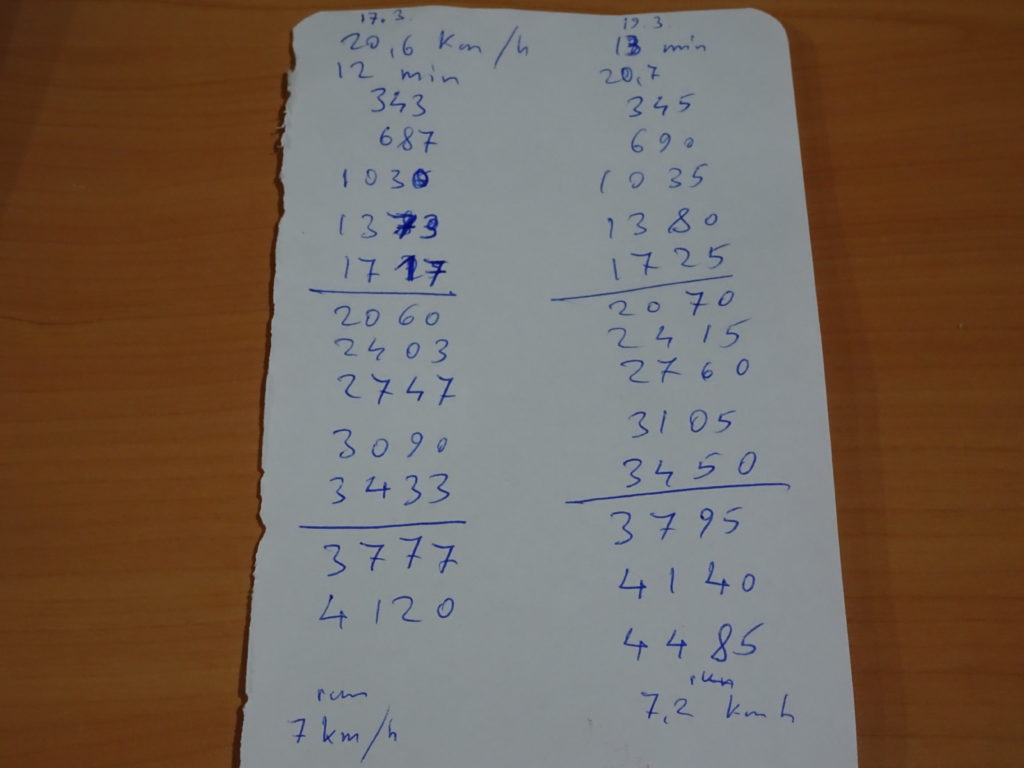 17.3.
20,6 Km/h
12 min
343
687
1030
1373
1717
2060
2403
2747
3090
3433
3777
4120
7 km/h
19.3.
13 min
20,7
345
690
1035
1380
1725
2070
2415
2760
3105
3450
3795
4140
4485
7,2 kmh